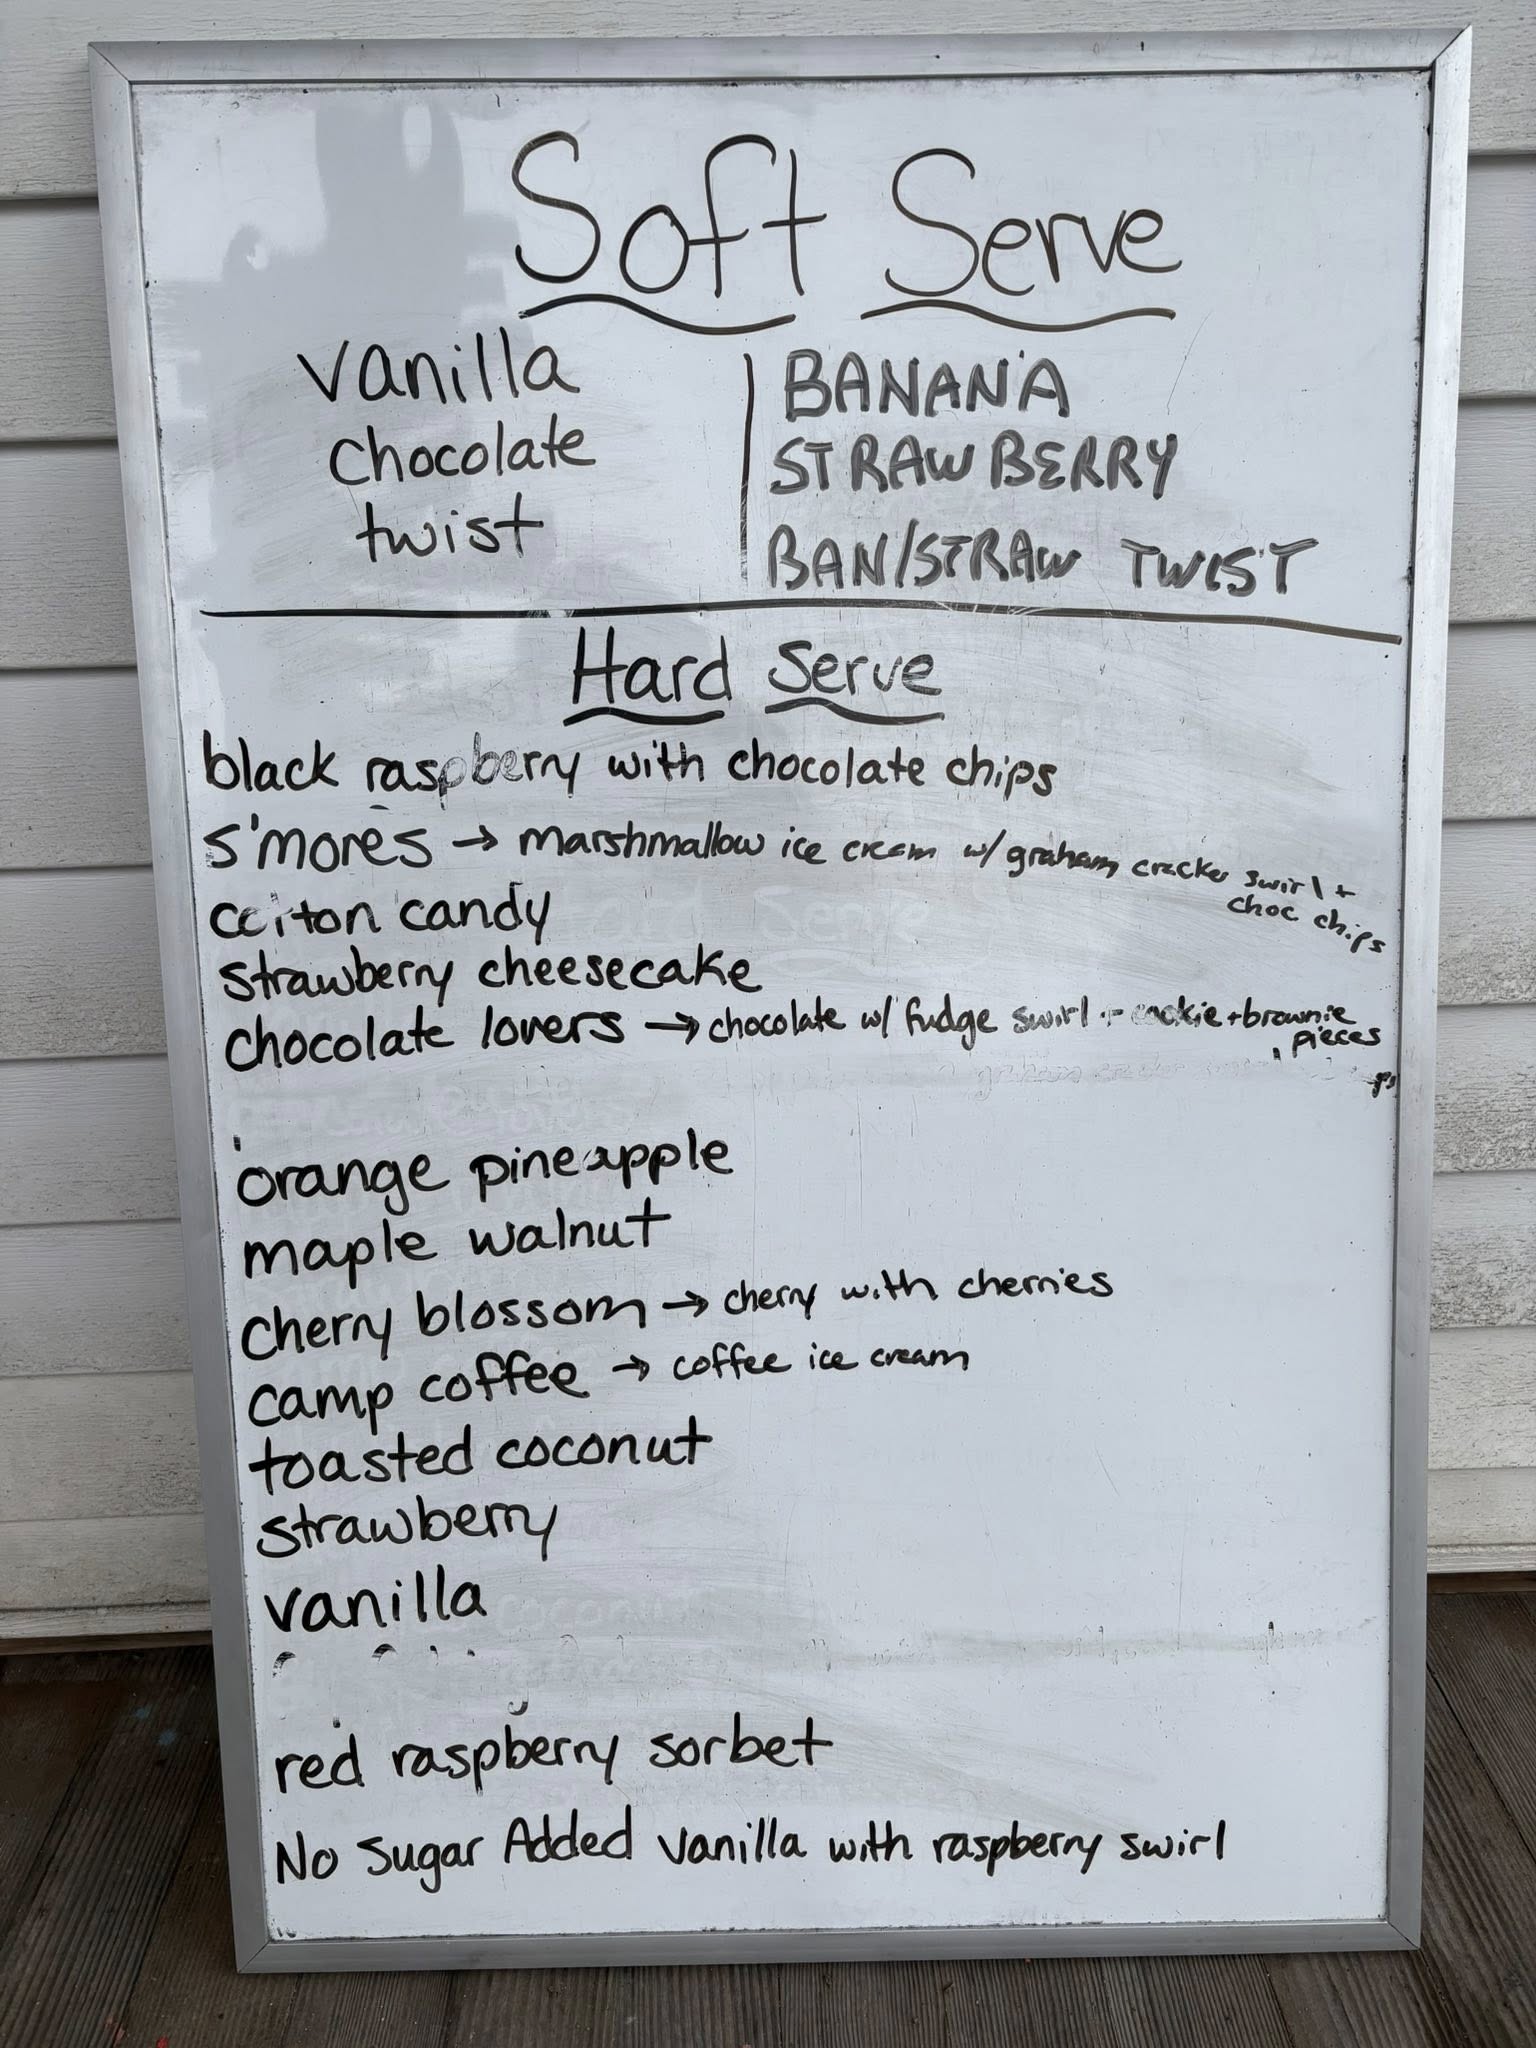 Soft Serve
vanilla
chocolate
twist
BANANA
STRAWBERRY
BAN/STRAW TWIST
Hard Serve
black raspberry with chocolate chips
s'mores → marshmallow ice cream w/ graham cracker swirl +
choc chips
cotton candy
strawberry cheesecake
chocolate lovers → chocolate w/ fudge swirl + cookie + brownie
pieces
orange pineapple
maple walnut
cherry blossom → cherry with cherries
camp coffee → coffee ice cream
toasted coconut
strawberry
vanilla
red raspberry sorbet
No Sugar Added vanilla with raspberry swirl